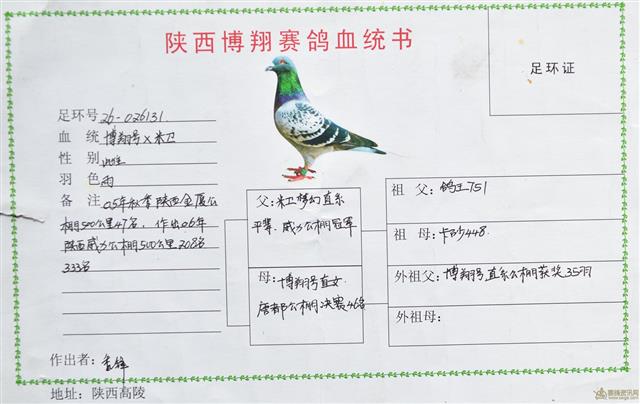 陕西博翔赛鸽血统书
足环证
足环号 26-026131
血 统 博翔号×米卫
性 别 雌
羽 色 雨
备 注 05年秋季陕西金厦公
棚500公里47名,作出06年
陕西威力公棚500公里208名
333名
父:米卫梦幻直系
平辈,威力公棚冠军
母:博翔号直女
唐都公棚决赛46名
祖 父:鸽王751
祖 母:卡沙448
外祖父:博翔号直系公棚获奖35羽
外祖母:
作出者:
地址:陕西高陵
赛鸽资讯网